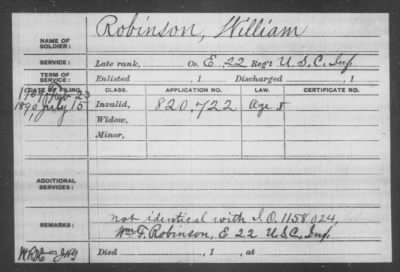 Robinson, William
NAME OF SOLDIER:
SERVICE: Late rank, Co. E 22 Regt U. S. C. Inf
TERM OF SERVICE: Enlisted , 1 Discharged , 1
DATE OF FILING. CLASS. APPLICATION NO. LAW. CERTIFICATE NO.
1907 Feb 23
1890, July 15 Invalid, 820,722
Widow,
Minor,
ADDITIONAL SERVICES:
not identical with I.O. 1158024,
REMARKS: Wm F. Robinson, E 22 U.S.C. Inf.
Died , 1 , at